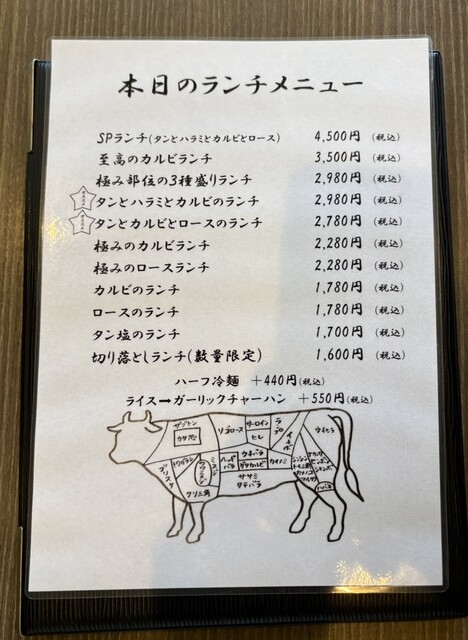 本日のランチメニュー
SPランチ(タンとハラミとカルビとロース) 4,500円 (税込)
至高のカルビランチ 3,500円 (税込)
極み部位の3種盛りランチ 2,980円 (税込)
タンとハラミとカルビのランチ 2,980円 (税込)
タンとカルビとロースのランチ 2,780円 (税込)
極みのカルビランチ 2,280円 (税込)
極みのロースランチ 2,280円 (税込)
カルビのランチ 1,780円 (税込)
ロースのランチ 1,780円 (税込)
タン塩のランチ 1,700円 (税込)
切り落としランチ(数量限定) 1,600円 (税込)
ハーフ冷麺 +440円(税込)
ライス→ガーリックチャーハン +550円(税込)
ザブトン
リブロース
サーロイン
ヒレ
ランプ
イチボ
ウチヒラ
ウチバラ
カイノミ
ブリスケ
トウガラシ
ミスジ
クリ三角
ササミ
タテバラ